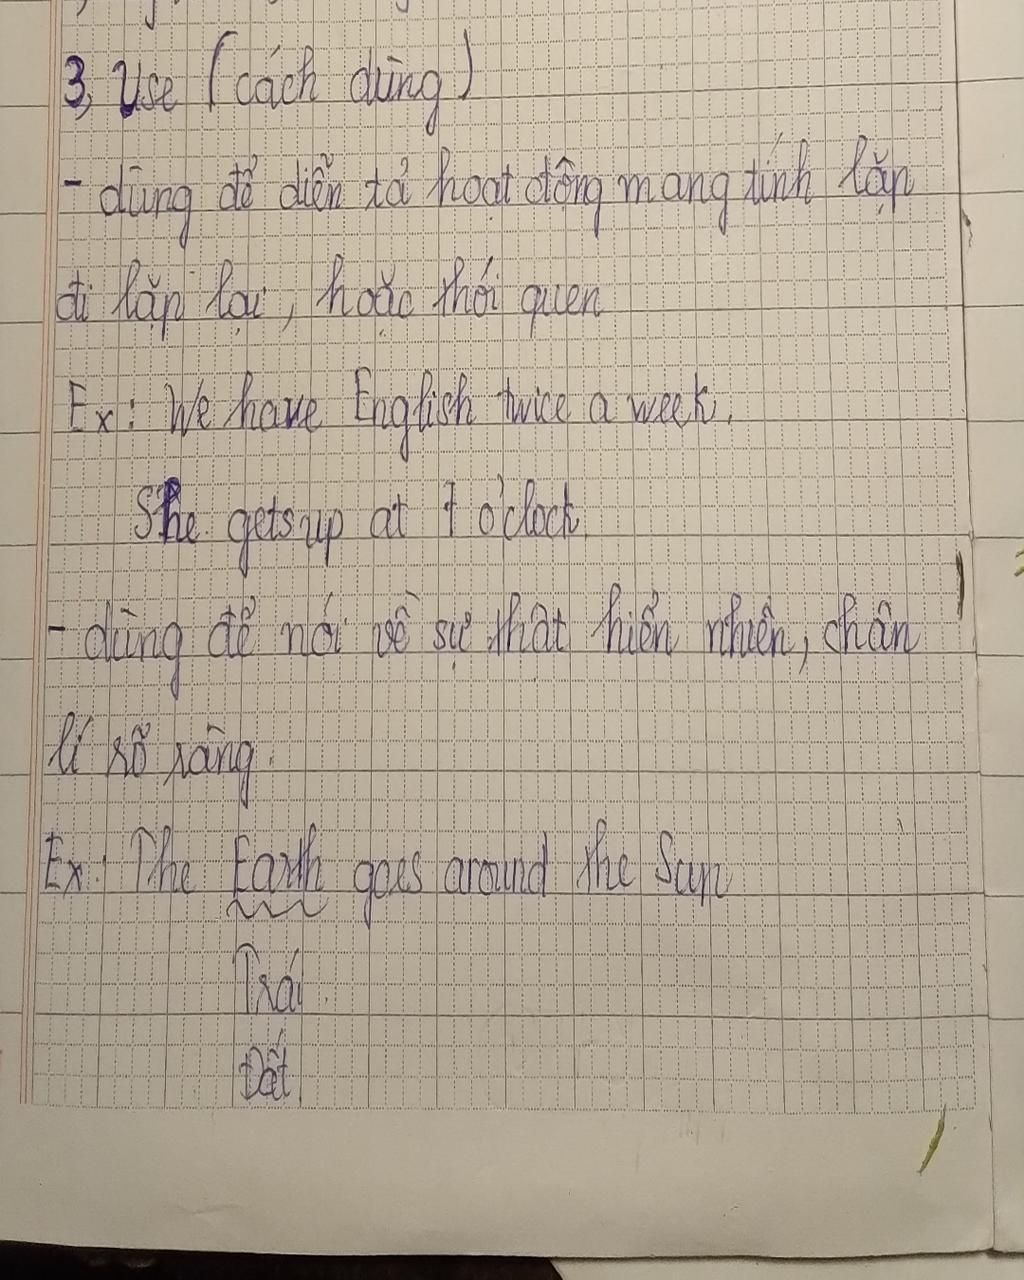 3, Use (cách dùng)
- dùng để diễn tả hoạt động mang tính lặp
đi lặp lại, hoặc thói quen
Ex: We have English twice a week.
She gets up at 7 o'clock.
- dùng để nói về sự thật hiển nhiên, chân
lí rõ ràng.
Ex: The Earth goes around the Sun
Trái
Đất